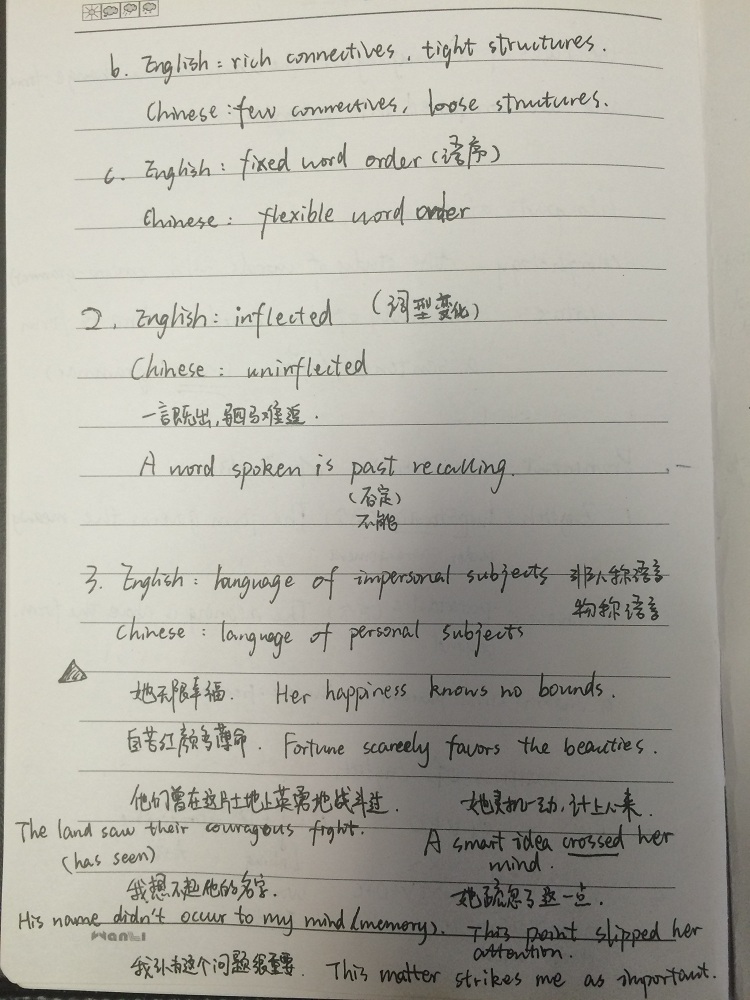 b. English: rich connectives, tight structures.
Chinese: few connectives, loose strutures.
c. English: fixed word order (语序)
Chinese: flexible word order
2. English: inflected (词型变化)
Chinese: uninflected
一言既出,驷马难追.
A word spoken is past recalling.
(否定)
不能
3. English: language of impersonal subjects 非人称语言
物称语言
Chinese: language of personal subjects
她无限幸福. Her happiness knows no bounds.
自苦红颜多薄命. Fortune scarcely favors the beauties.
他们曾在这片土地上英勇地战斗过. 她灵机一动,计上心来.
The land saw their couragous fight. A smart idea crossed her
(has seen) mind.
我想不起他的名字. 她疏忽了这一点.
His name didn't occur to my mind (memory). This point slipped her
attention.
这个问题很重要. This matter strikes me as important.